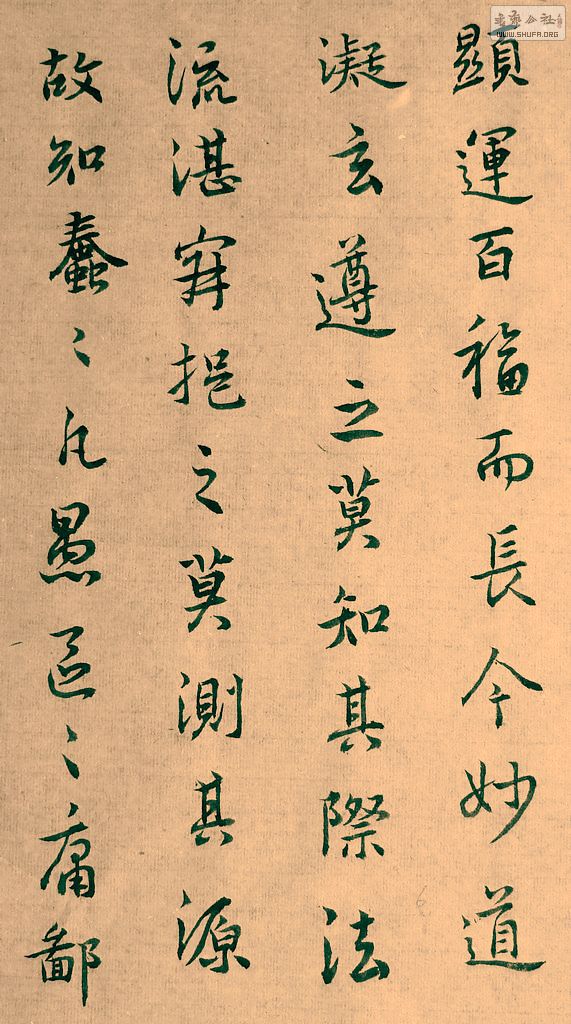 顯運百福而長今妙道
凝玄遵之莫知其際法
流湛寂挹之莫測其源
故知蠢〻凡愚區〻庸鄙
書藝公社
WWW.SHUFA.ORG